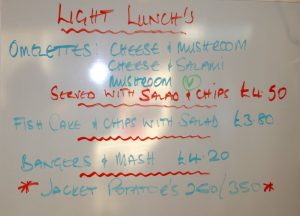 LIGHT LUNCH'S
OMELETTES: CHEESE & MUSHROOM
CHEESE & SALAMI
MUSHROOM V
SERVED WITH SALAD & CHIPS £4.50
FISH CAKE & CHIPS WITH SALAD £3.80
BANGERS & MASH £4.20
* JACKET POTATOE'S 250/350 *